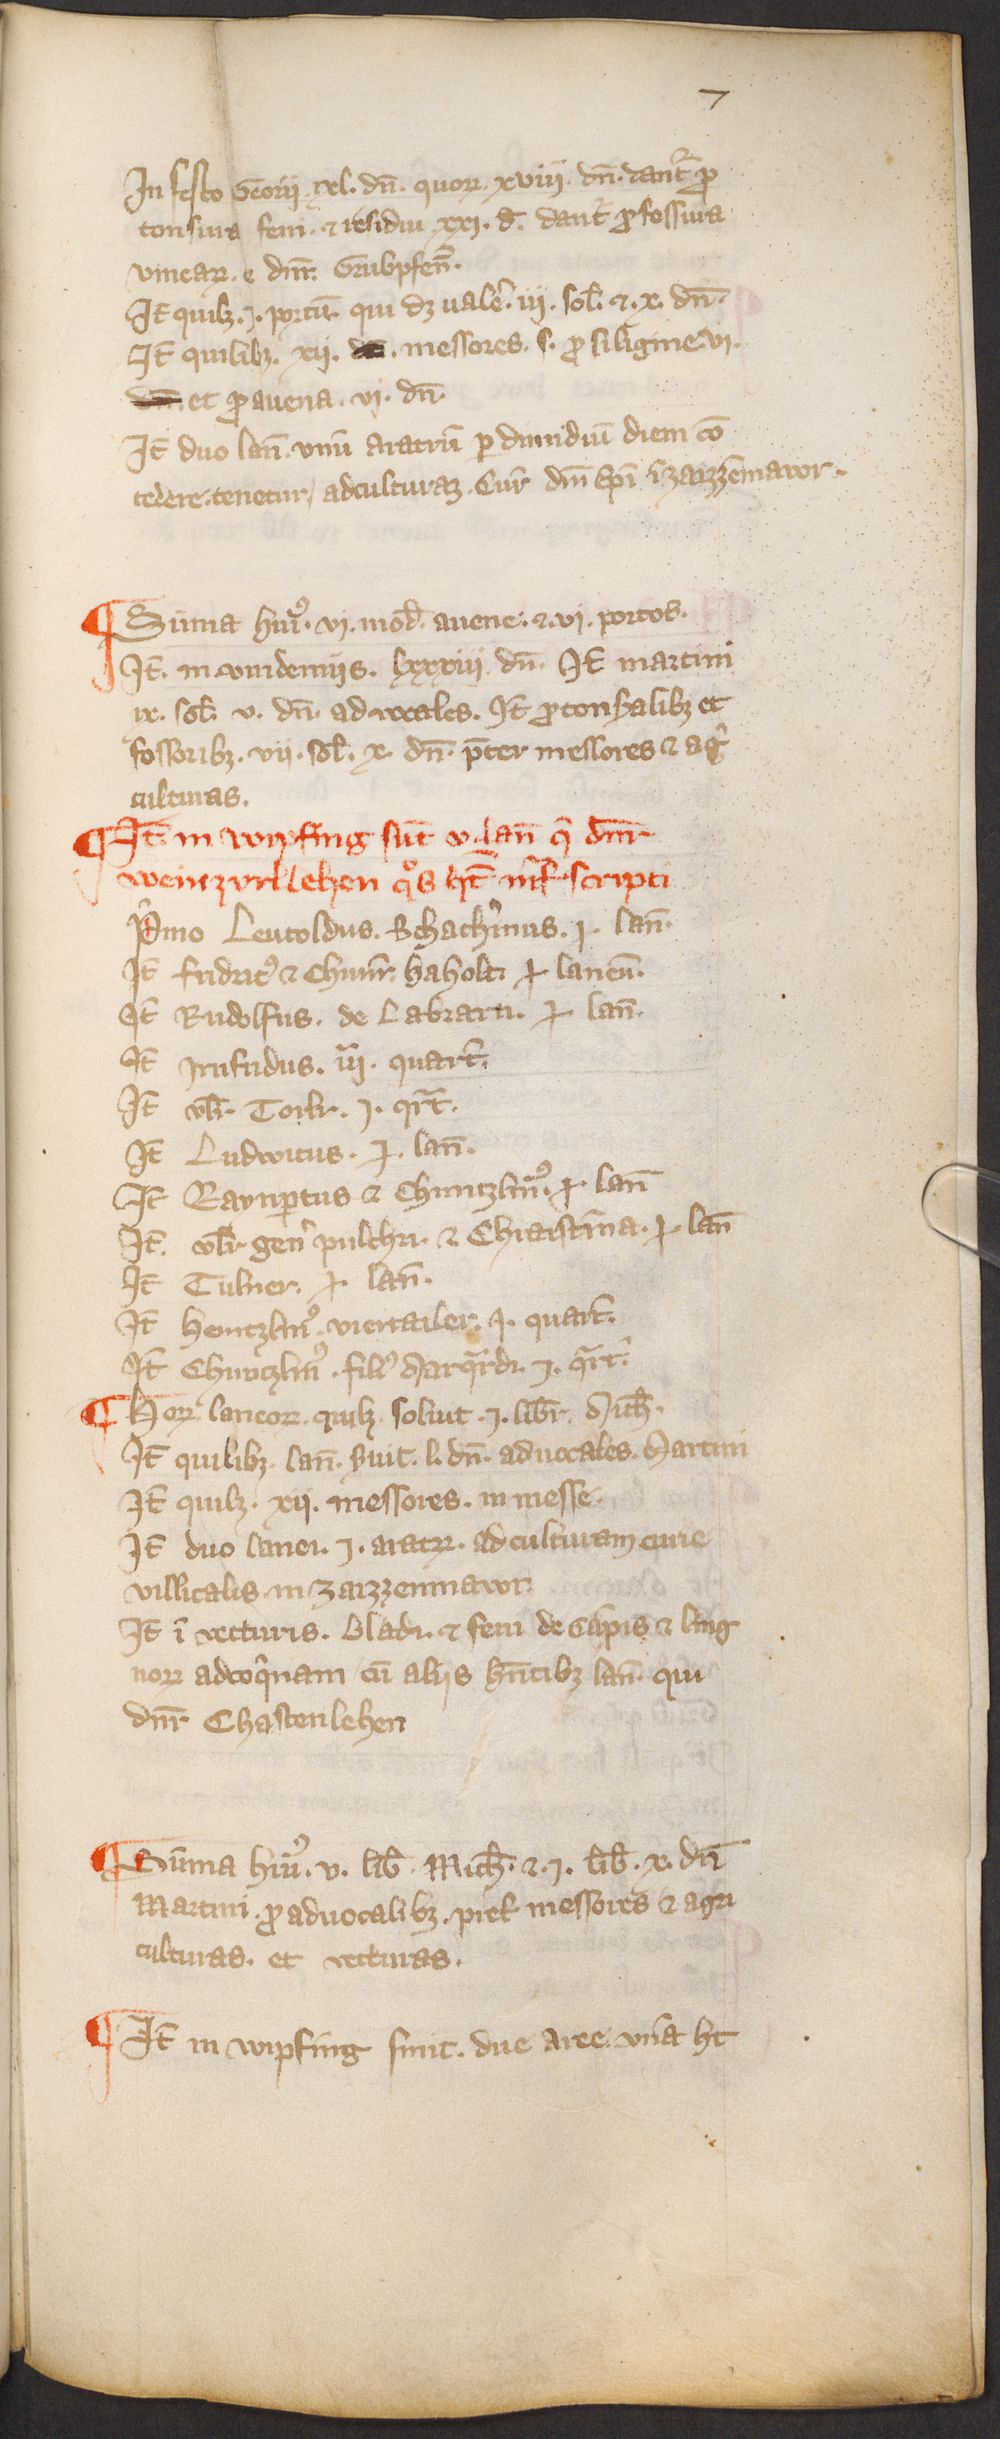 7
In festo Georii. xxl. dn̄. quoꝝ. xviii. dn̄. dant᷑ ꝓ
tonsura feni. ⁊ residui xxi. d̄. dant᷑ ꝓ fossura
vineaꝝ. e dn̄r. Grubpfen̄.
Jt̄ quilꝫ. j. porcū qui dꝫ valē. iii. sol̄. ⁊. x. dn̄.
Jt̄ quilibꝫ. xij. messores. s. ꝓ siligine vi.
et ꝓ auena. vj. dn̄.
Jt̄ duo lan̄. vnū aratrū ꝑ dimidiū diem cō
cedere tenetur, ad culturaꝫ. Cur̄ dn̄i Ep̄i ī Zaizzēmawr.
¶ Sūma huiꝰ. vi. mod̄. auene. ⁊. vj. porcos.
Jt̄. in vindemiis. lxxxiii dn̄. Jt̄ martini
ix. sol̄. v. dn̄. aduocales. Jt̄ ꝓ tonsalibꝫ et
fossoribꝫ. vii. sol̄. x. dn̄. p̄ter messores ⁊ ag̑
culturas.
¶ Jt̄ in wipfing sūt v. lan̄ q̑ dn̄r
weinzurllehen qͦs hn̄t infrascripti
P̑mo Leutoldus. Schachn̄nus. j. lan̄.
Jt̄ fridricꝰ ⁊ Chunr̄ haholt. j. laneū.
Jt̄ Rudolfus. de Labrarn. j. lan̄.
Jt̄ Irnfridus. iii. quart̄.
Jt̄ vlr̄ Torlr. j. qr̄t.
Jt̄ Ludwicus. j. lan̄.
Jt̄ Raynꝑtus ⁊ Chuntzlinꝰ. j. lan̄
Jt̄. vlr̄ gen̄ pulchri. ⁊ Christina. j. lan̄
Jt̄ Tulner. j. lan̄.
Jt̄ Heintzlinꝰ. viertailer. j. quart̄.
Jt̄ Chuntzlinꝰ. filiꝰ Marq̄rdi. j. qr̄t.
¶ Hoꝝ laneoꝝ. quilꝫ. soluit. j. libr̄. Mich̄.
Jt̄ quilibꝫ. lan̄. s̄uit. l. dn̄. aduocales. Martini
Jt̄ quilꝫ. xij. messores. in messe.
Jt̄ duo lanei. j. aratꝝ. ad culturam curie
villicalis in Zaizzenmawr.
Jt̄ ī vecturis. bladi. ⁊ feni de cāpis ⁊ lig
noꝝ ad coq̑nam cū aliis hn̄tibꝫ lan̄. qui
dn̄r Chastenlehen
¶ Sūma huiꝰ. v. lib̄. Mich̄. ⁊. j. lib̄. x. dn̄
Martini. ꝓ aduocalibꝫ. pret̄ messores ⁊ agri
culturas. et vecturas.
¶ Jt̄ in wipfing sunt. due aree. vnā ht